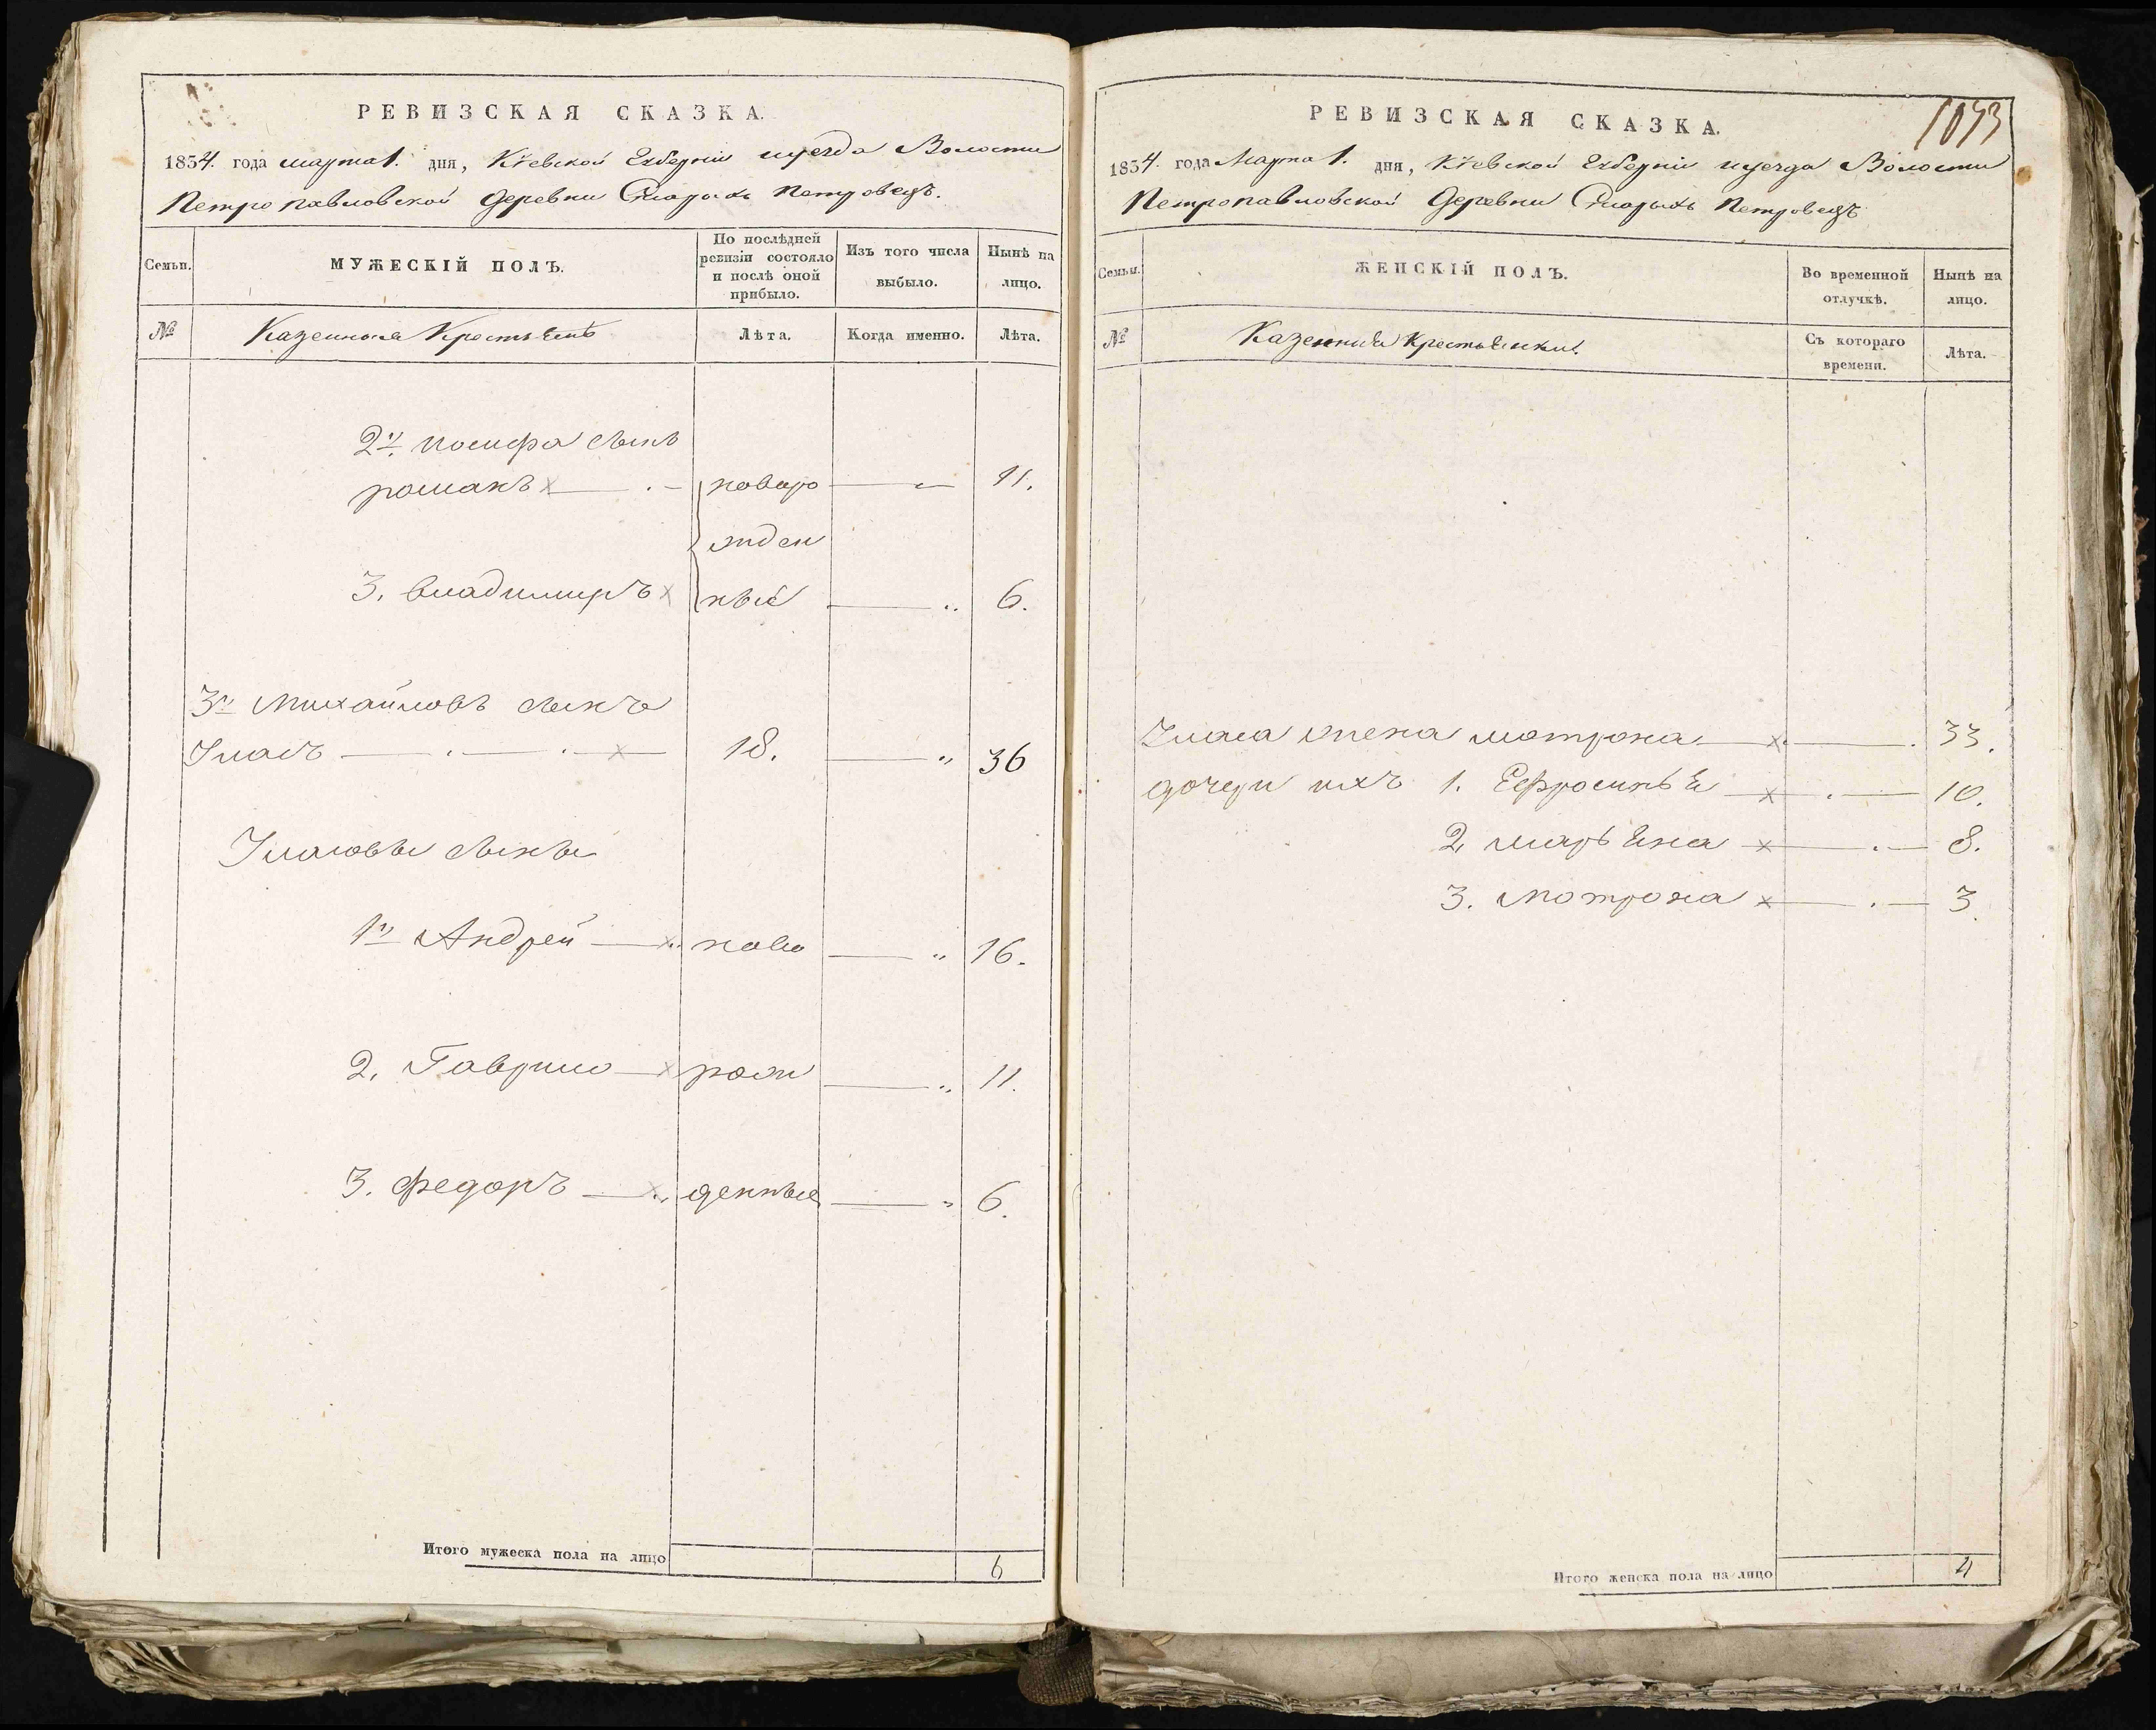 РЕВИЗСКАЯ СКАЗКА.
1834. года марта 1. дня, Кіевской Губерніи и уезда Волости
Петропавловской деревни Старыхъ Петровецъ.
Семьи.
МУЖЕСКІЙ ПОЛЪ.
По послѣдней ревизіи состояло и послѣ оной прибыло.
Изъ того числа выбыло.
Нынѣ на лицо.
№
Казенныя Крестьяне
Лѣта.
Когда именно.
Лѣта.
2й иосифа сынъ
романъ х новоро 11.
жден
3. владимиръ х ные 6.
3й Михайловъ сынъ
Уласъ х 18. 36
Уласовы сыны
1й Андрей х ново 16.
2. Гаврило х рож 11.
3. федоръ х денные 6.
Итого мужеска пола на лицо 6
РЕВИЗСКАЯ СКАЗКА.
1834. года Марта 1. дня, Кіевской Губерніи и уезда Волости
Петропавловской деревни Старыхъ Петровецъ
Семьи.
ЖЕНСКІЙ ПОЛЪ.
Во временной отлучкѣ.
Нынѣ на лицо.
№
Казенныя Крестьянки.
Съ котораго времени.
Лѣта.
Уласа жена мотрона х 33.
дочери ихъ 1. Ефросинья х 10.
2. марьяна х 8.
3. мотрона х 3.
Итого женска пола на лицо 4